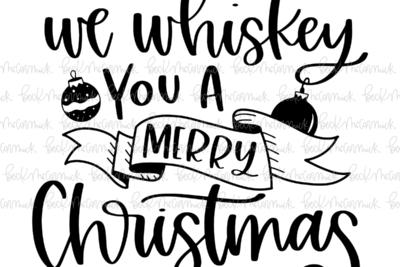 we whiskey
YOU A
MERRY
Christmas